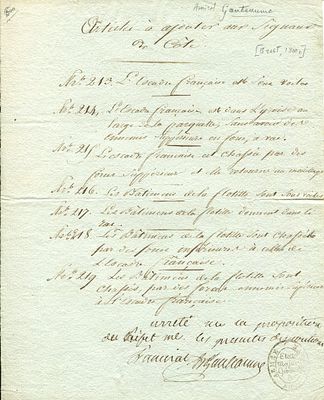 Amiral Ganteaume
Articles à ajouter aux Signaux
de Côte
[Brest, 1800]
No. 213. L'Escadre française est sous voiles
No. 214. L'Escadre française est dans l'Iroise au
large de la
ennemis Supérieure en force, à vue.
No. 215 L'escadre française est chassée par des
force Supérieure et elle retourne au mouillage
No. 216. Les Bâtimens de la flotille sont sous voiles
No. 217. Les Bâtimens de la flotille donnent dans le
raz.
No. 218. Les Bâtimens de la flotille sont chassés
par des force inférieures à celles de
l'Escadre française.
No. 219 Les Bâtimens de la flotille sont
chassés par des forces ennemies Supérieures
à l'Escadre française.
arretté sur la proposition
du Préfet me. les
l'amiral Ganteaume